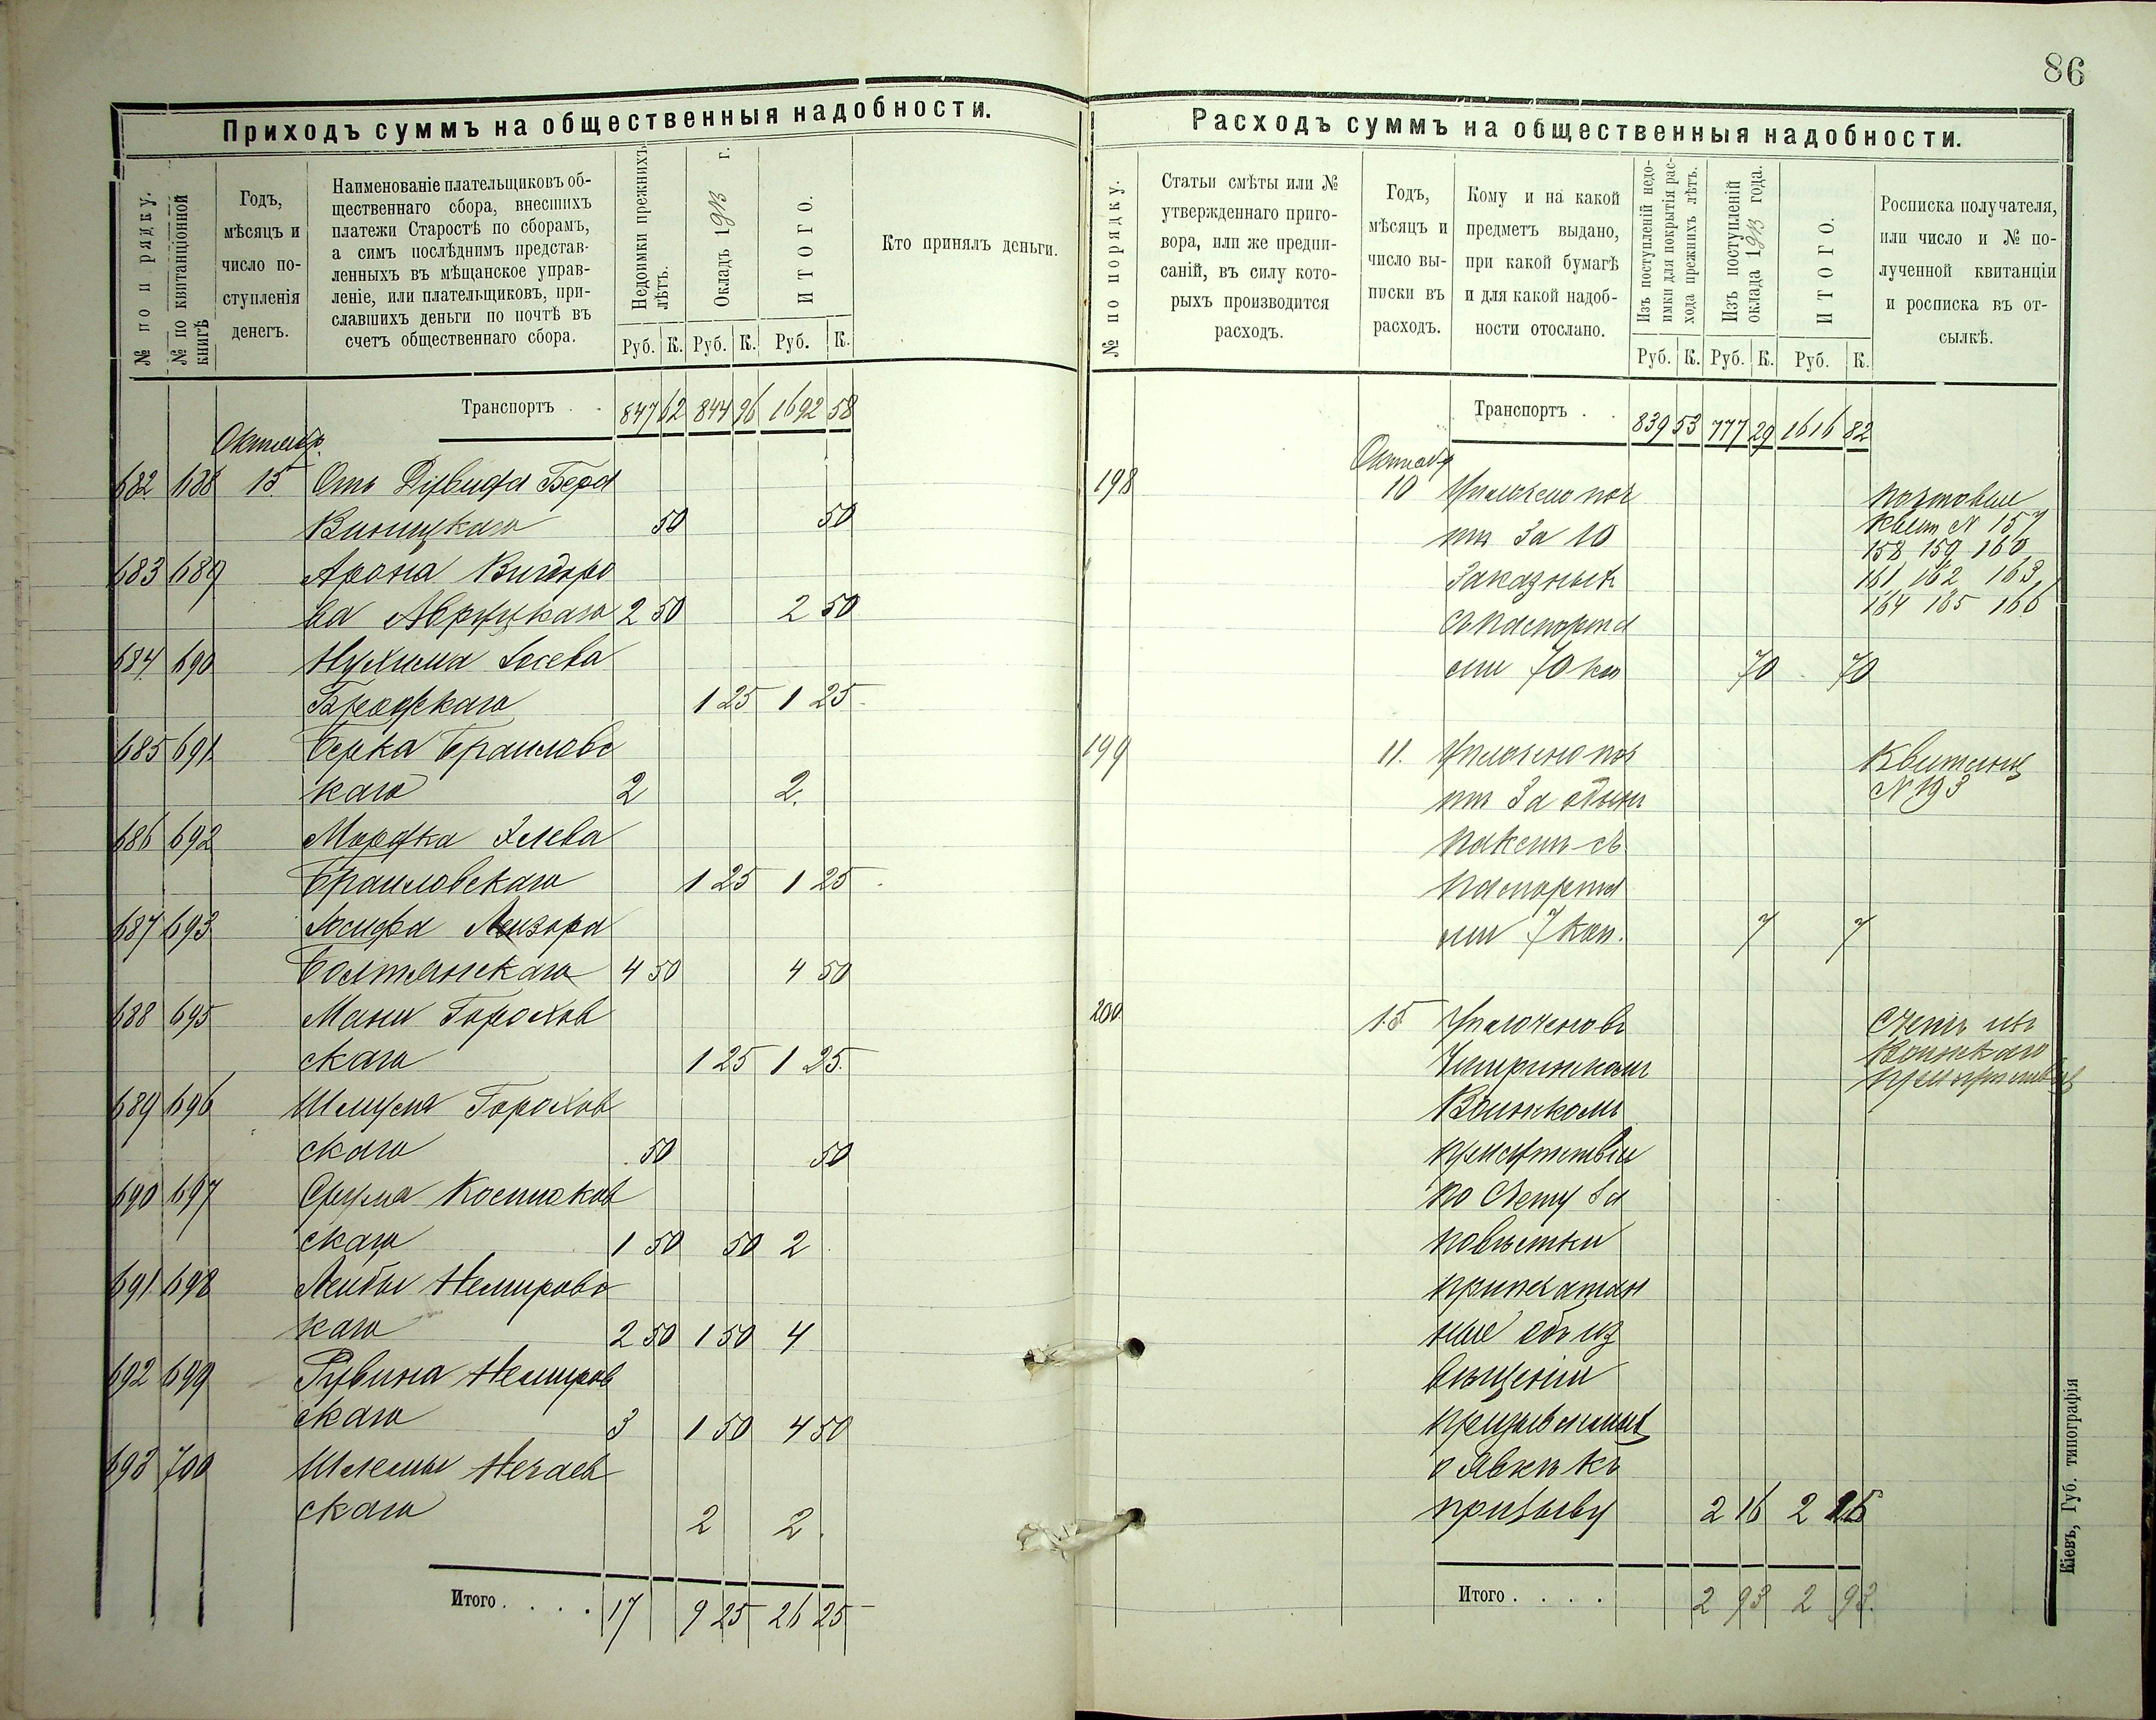 86
Приходъ суммъ на общественныя надобности.
№ по порядку.
№ по квитанціонной книгѣ
Годъ,
мѣсяцъ и
число по-
ступленія
денегъ.
Наименованіе плательщиковъ об-
щественнаго сбора, внесшихъ
платежи Старостѣ по сборамъ,
а симъ послѣднимъ представ-
ленныхъ въ мѣщанское управ-
леніе, или плательщиковъ, при-
славшихъ деньги по почтѣ въ
счетъ общественнаго сбора.
Недоимки прежнихъ
лѣтъ.
Окладъ 1913 г.
ИТОГО.
Руб. К. Руб. К. Руб. К.
Кто принялъ деньги.
Транспортъ . . 847 62 844 96 1692 58
Октябр.
682 688 15 Отъ Дувида Бера
Виницкаго 50 50
683 689 Арона Видоро
ва Авруцкаго 2 50 2 50
684 690 Нухима Іосева
Бродскаго 1 25 1 25
685 691 Берка Браиловс
каго 2 2
686 692 Мордка Элева
Браиловскаго 1 25 1 25
687 693 Іосифа Лейзора
Балтянскаго 4 50 4 50
688 695 Мани Горохов
скаго 1 25 1 25
689 696 Шлиома Горохов
скаго 50 50
690 697 Срула Костюков
скаго 1 50 50 2
691 698 Лейбы Немировс
каго 2 50 1 50 4
692 699 Рувина Немиров
скаго 3 1 50 4 50
693 700 Шлемы Нечаев
скаго 2 2
Итого . . . . 17 9 25 26 25
Расходъ суммъ на общественныя надобности.
№ по порядку.
Статьи смѣты или №
утвержденнаго приго-
вора, или же предпи-
саній, въ силу кото-
рыхъ производится
расходъ.
Годъ,
мѣсяцъ и
число вы-
писки въ
расходъ.
Кому и на какой
предметъ выдано,
при какой бумагѣ
и для какой надоб-
ности отослано.
Изъ поступленій недо-
имки для покрытія рас-
хода прежнихъ лѣтъ.
Изъ поступленій
оклада 1913 года.
ИТОГО.
Руб. К. Руб. К. Руб. К.
Росписка получателя,
или число и № по-
лученной квитанціи
и росписка въ от-
сылкѣ.
Транспортъ . . 839 53 777 29 1616 82
Октябр
198 10 Уплочено поч
тѣ за 10
заказныхъ
съ паспорта
ми 70 ко 70 70
почтовые
квит № 157
158 159 160
161 162 163
164 165 166
199 11. Уплочено поч
тѣ за одинъ
пакетъ съ
паспорта
ми 7 коп. 7 7
Квитанц
№ 193
200 15 Уплочено въ
Воинскомъ
присутствіи
по счету за
повѣстки
припечатан
ные объ из
вѣщеніи
призываемыхъ
о явкѣ къ
призыву 2 16 2 16
Счетъ изъ
Воинскаго
присутствія
Итого . . . . 2 93 2 93.
Кіевъ, Губ. типографія